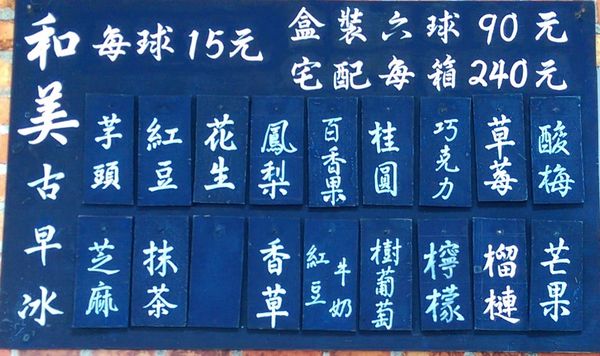 和美古早冰
每球15元
盒裝六球90元
宅配每箱240元
芋頭
紅豆
花生
鳳梨
百香果
桂圓
巧克力
草莓
酸梅
芝麻
抹茶
香草
紅豆牛奶
樹葡萄
檸檬
榴槤
芒果